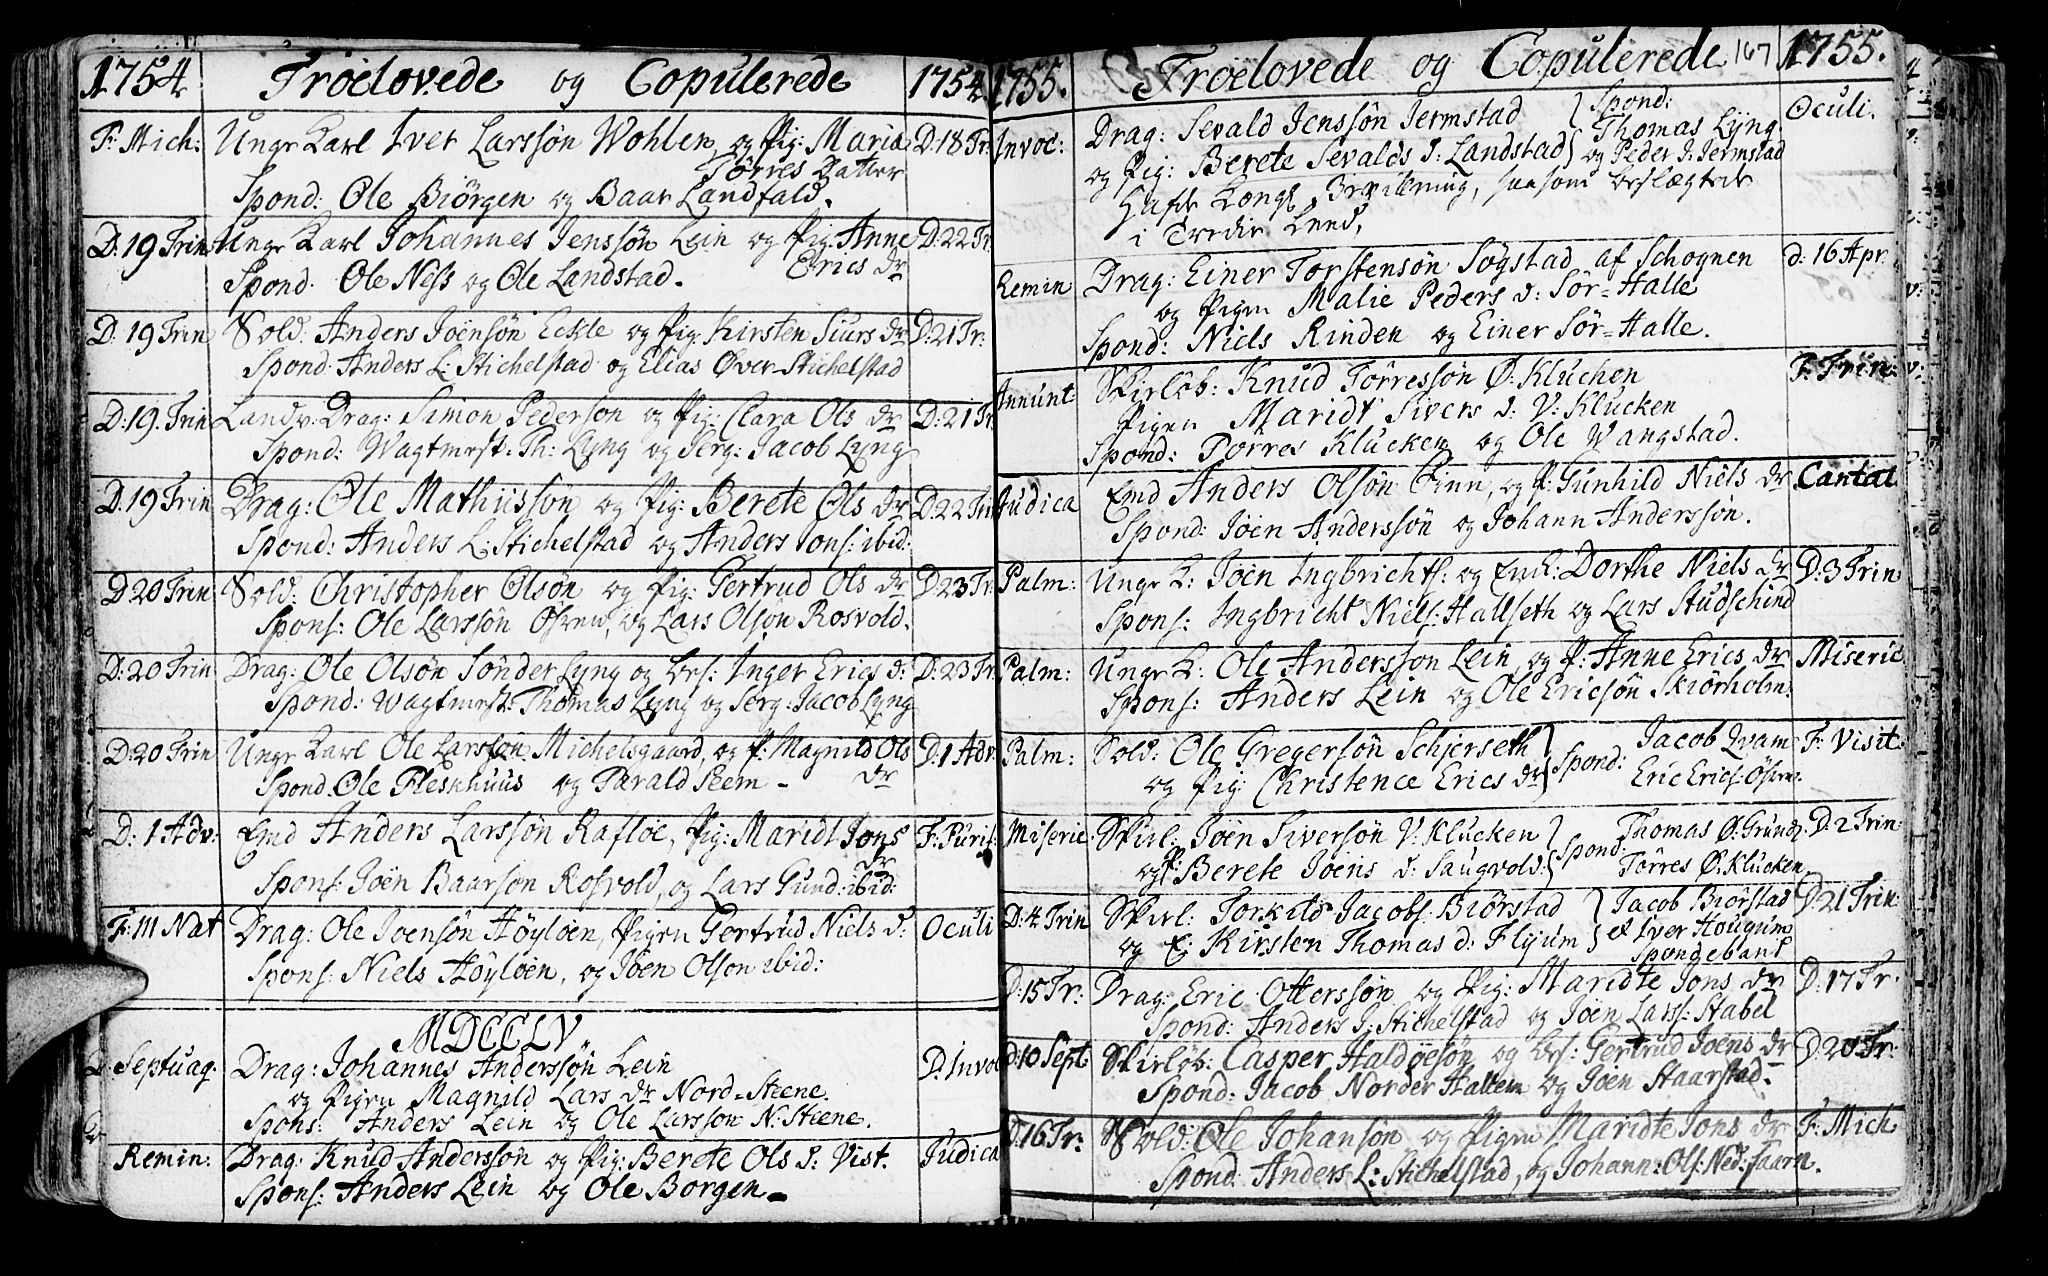 1754 Troelovede og Copulerede 1754
F: Mich: Unge Karl Iver Larssön Wohlen, og Pig: Maria D: 18 Tr:
Törres Datter
Spond: Ole Biörgen og Baar Landfald.
D: 19 Trin Unge Karl Johannes Jenssön Lein og Pig: Anne D: 22 Tr:
Erics dr
Spond. Ole Ness og Ole Landstad.
D: 19 Trin Sold: Anders Joensön Eckle og Pig: Kirsten Siurs dr D: 21 Tr:
Spond. Anders L: Stichelstad og Elias Över-Stichelstad
D: 19. Trin Landv: Drag: Simon Pederson og Pig: Clara Ols dr D: 21 Tr:
Spond: Wagtmest. Th: Lyng og Serg: Jacob Lyng
D. 19 Trin Drag: Ole Mathiisson og Pig: Berete Ols dr D: 22 Trin
Spond: Anders L: Stichelstad og Anders Jons: ibid:
D 20 Trin Sold: Christopher Olsön og Pig: Gertrud Ols dr D: 23 Tr:
Spons: Ole Larssön Öfren, og Lars Olsön Rosvold.
D: 20 Trin Drag: Ole Olsön Sönder Lyng og Bes: Inger Erics d: D: 23 Tr.
Spond: Wagtmest: Thomas Lyng og Serg: Jacob Lyng
D: 20 Trin Unge Karl Ole Larssön Michelsgaard, og P: Magnild Ols D: 1 Adv:
dr
Spond. Ole Fleskhuus og Parald Reem -
D: 1 Adv: Emd Anders Larssön Rafloe, Pig: Maridt Jons F: Purif:
dr
Spons: Joen Baarson Rosvold, og Lars Gund: ibid:
F: 111 Nat Drag: Ole Joensön Höyloen, Pigen Gertrud Niels d: Oculi
Spons: Niels Höyloen, og Joen Olson ibid:
MDCCLV
Septuag. Drag: Johannes Anderssön Lein D. Invoc
og Pigen Magnild Lars dr Nord=Steene.
Spons: Anders Lein og Ole Larsson N: Steene.
Remin: Drag: Knud Anderssön og Pig: Berete Ols d: Vist. Judica
Spons: Anders Lein og Ole Borgen -
1755. Troelovede og Copulerede 167 1755.
Invoc: Drag: Sevald Jenssön Jermstad Spond: Oculi.
og Pig: Berete Sevalds d: Landstad Thomas Lyng
og Peder J: Jermstad
Hafde Kongl. Bevilning, saasom beslægtede
i Tredie Leed.
Remin Drag: Einer Torstensön Sogstad af Schognen d: 16 Apr:
og Pigen Malie Peders d: Sör=Halle
Spond: Niels Rinden og Einer Sör=Halle.
Annunt: Skirlöb: Knud Törressön Ö: Kluchen F: Trin:
Pigen Maridt Sivers d: V: Klucken
Spond: Törres Klucken og Ole Wangstad.
Judica Emd Anders Olsön Finn, og P: Gunhild Niels dr Cantat
Spond: Joen Anderssön og Johann Anderssön.
Palm: Unge K: Joen Ingbrichts: og Enk: Dorthe Niels dr D: 3 Trin
Spons: Ingbricht Niels: Hallseth og Lars Studschind
Palm: Unge K: Ole Andersson Lein, og P: Anne Erics dr Miseric
Spons: Anders Lein og Ole Ericsön Skiörholm.
Palm: Sold: Ole Gregersön Schjerseth Spond: Jacob Qvam F: Visit:
og Pig: Christence Erics dr Eric Erics: Öfren.
Miseric Skirl: Joen Siversön V: Klucken Spond: Thomas Ö: Grund D: 2 Trin
og P: Berete Joens d: Saugvold: Törres Ö: Klucken
D: 4 Trin Skirl: Torkild Jacobs: Biörstad Jacob Biörstad D: 21 Trin
og E: Kirsten Thomas d: Flyum et Iver Hougum
Spondebant
D: 15 Tr: Drag: Eric Otterssön og Pig: Maridte Jons dr D: 17 Tr.
Spond: Anders J: Stichelstad og Joen Lars: Stabel
D: 10 Sept Skirlöb: Casper Haldoesön og Bes: Gertrud Joens dr D: 20 Tr:
Spond: Jacob Norder Hallem og Joen Staarstad.
D: 16 Tr: Sold: Ole Johansön og Pigen Maridte Jons dr F: Mich
Spond. Anders L: Stichelstad, og Johann: Ols: Ned: faarn.